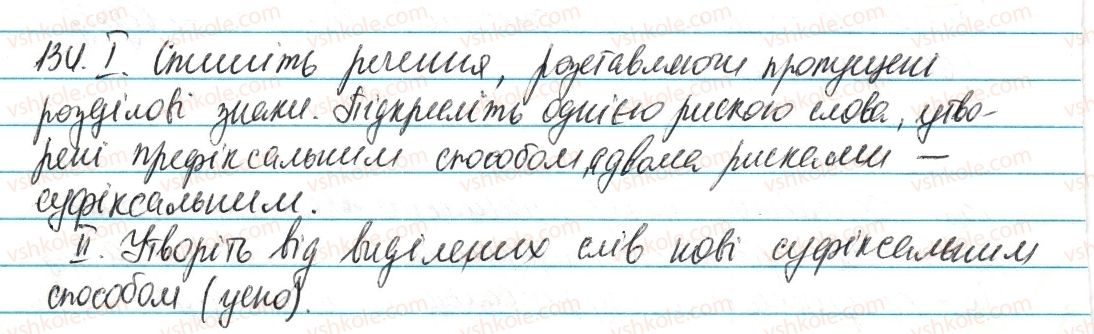 134. I. Спишіть речення, розставляючи пропущені
розділові знаки. Підкресліть однією рискою слова, утво-
рені префіксальним способом, а двома рисками —
суфіксальним.
II. Утворіть від виділених слів нові суфіксальним
способом (усно).